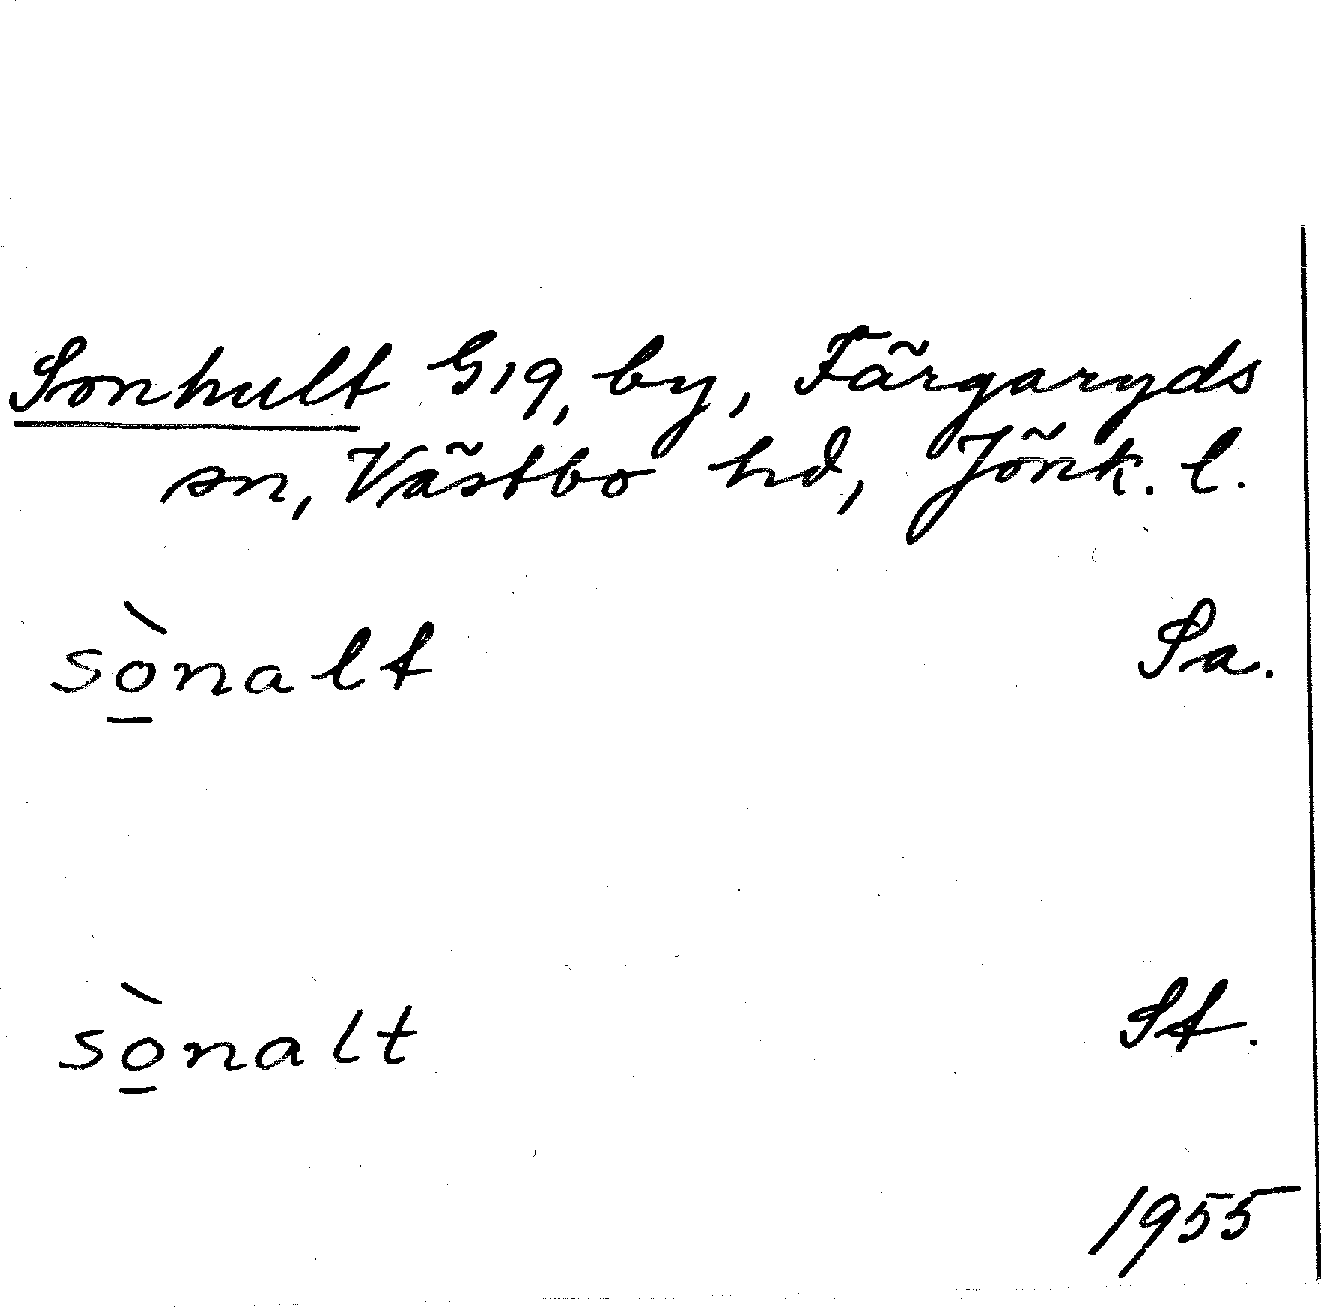 Sonhult G19, by, Färgaryds
sn, Västbo hd, Jönk. l.
sò̱nalt Sa.
sò̱nalt St.
1955